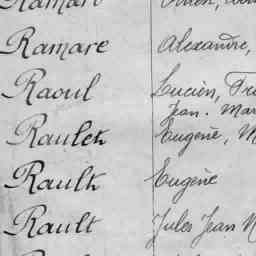 Ramare Alexandre,
Raoul Lucien,
Jean. Mar
Raulet Eugène, M
Rault Eugène
Rault Jules Jean